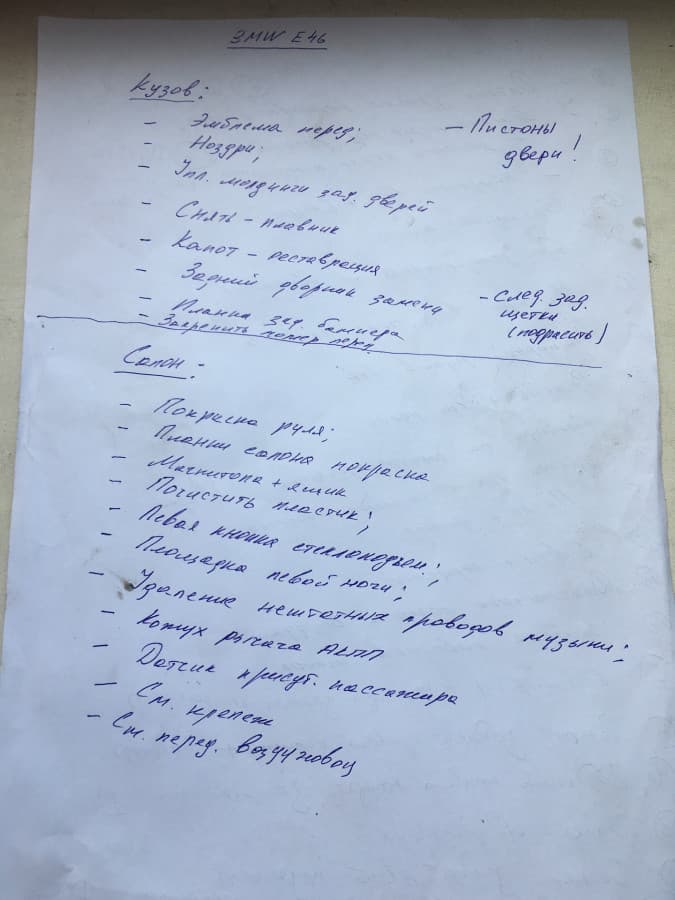 BMW E46
Кузов:
- Эмблема перед;
- Ноздри;
- Упл. молдинги зад. дверей
- Снять - плавник
- Капот - реставрация
- Задний дворник замена
- Планка зад. бампера
- Закрепить номер перед.
- Пистоны
двери!
- След. зад.
щетки
(подкрасить)
Салон:
- Покраска руля;
- Планки салона покраска
- Магнитола + ящик
- Почистить пластик;
- Левая кнопка стеклоподъем.;
- Площадка левой ноги;
- Удаление нештатных проводов музыки;
- Кожух рычага АКПП
- Датчик присут. пассажира
- См. крепеж
- См. перед. воздуховод